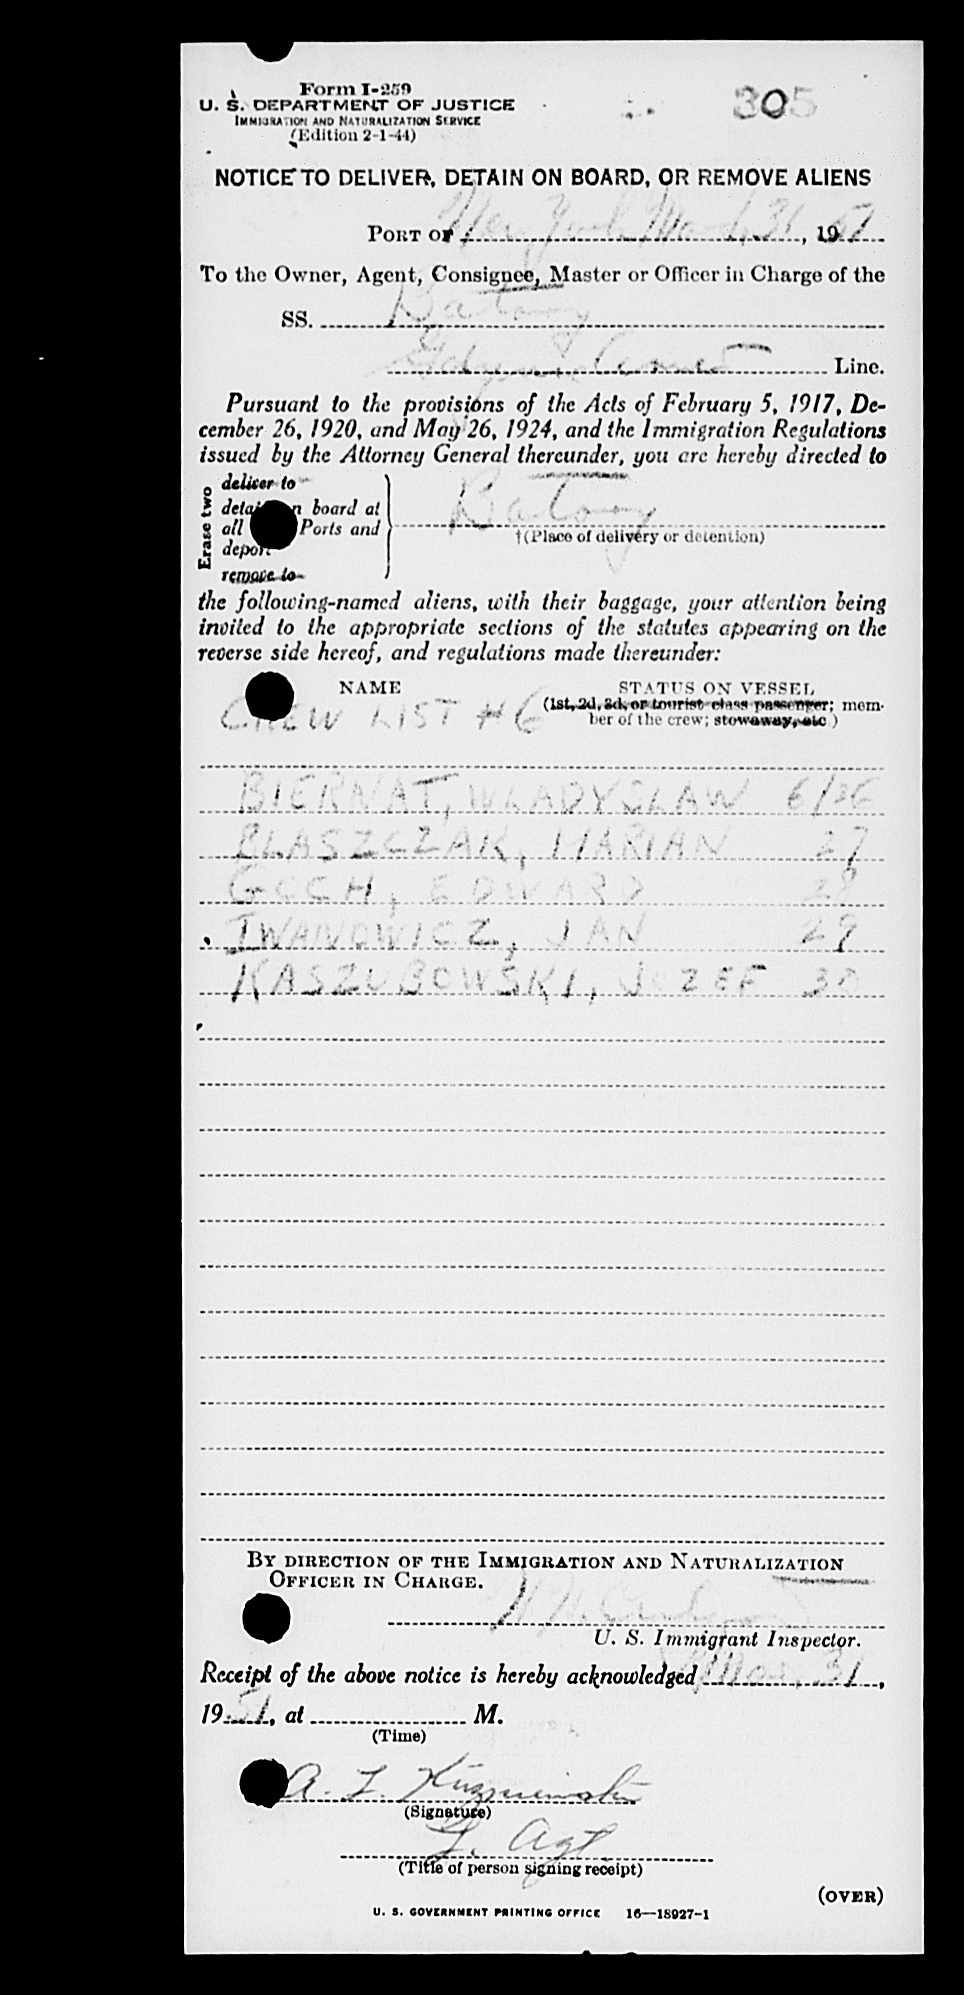 Form I-259
305
U. S. DEPARTMENT OF JUSTICE
IMMIGRATION AND NATURALIZATION SERVICE
(Edition 2-1-44)
NOTICE TO DELIVER, DETAIN ON BOARD, OR REMOVE ALIENS
PORT OF New York March 31, 1951
To the Owner, Agent, Consignee, Master or Officer in Charge of the
SS. Batory
Gdynia America Line.
Pursuant to the provisions of the Acts of February 5, 1917, De-
cember 26, 1920, and May 26, 1924, and the Immigration Regulations
issued by the Attorney General thereunder, you are hereby directed to
Erase two
deliver to
detain on board at
all Ports and
deport
remove to
Batory
†(Place of delivery or detention)
the following-named aliens, with their baggage, your attention being
invited to the appropriate sections of the statutes appearing on the
reverse side hereof, and regulations made thereunder:
NAME STATUS ON VESSEL
(1st, 2d, 3d, or tourist class passenger; mem-
ber of the crew; stowaway, etc.)
CREW LIST #6
BIERNAT, WLADYSLAW 6/26
BLASZCZAK, MARIAN 27
GOCH, EDWARD 28
IWANOWICZ, JAN 29
KASZUBOWSKI, JOZEF 30
BY DIRECTION OF THE IMMIGRATION AND NATURALIZATION
OFFICER IN CHARGE.
U. S. Immigrant Inspector.
Receipt of the above notice is hereby acknowledged Mar. 31,
1951, at M.
(Time)
A. L.
(Signature)
Agt
(Title of person signing receipt)
(OVER)
U. S. GOVERNMENT PRINTING OFFICE 16—18927-1